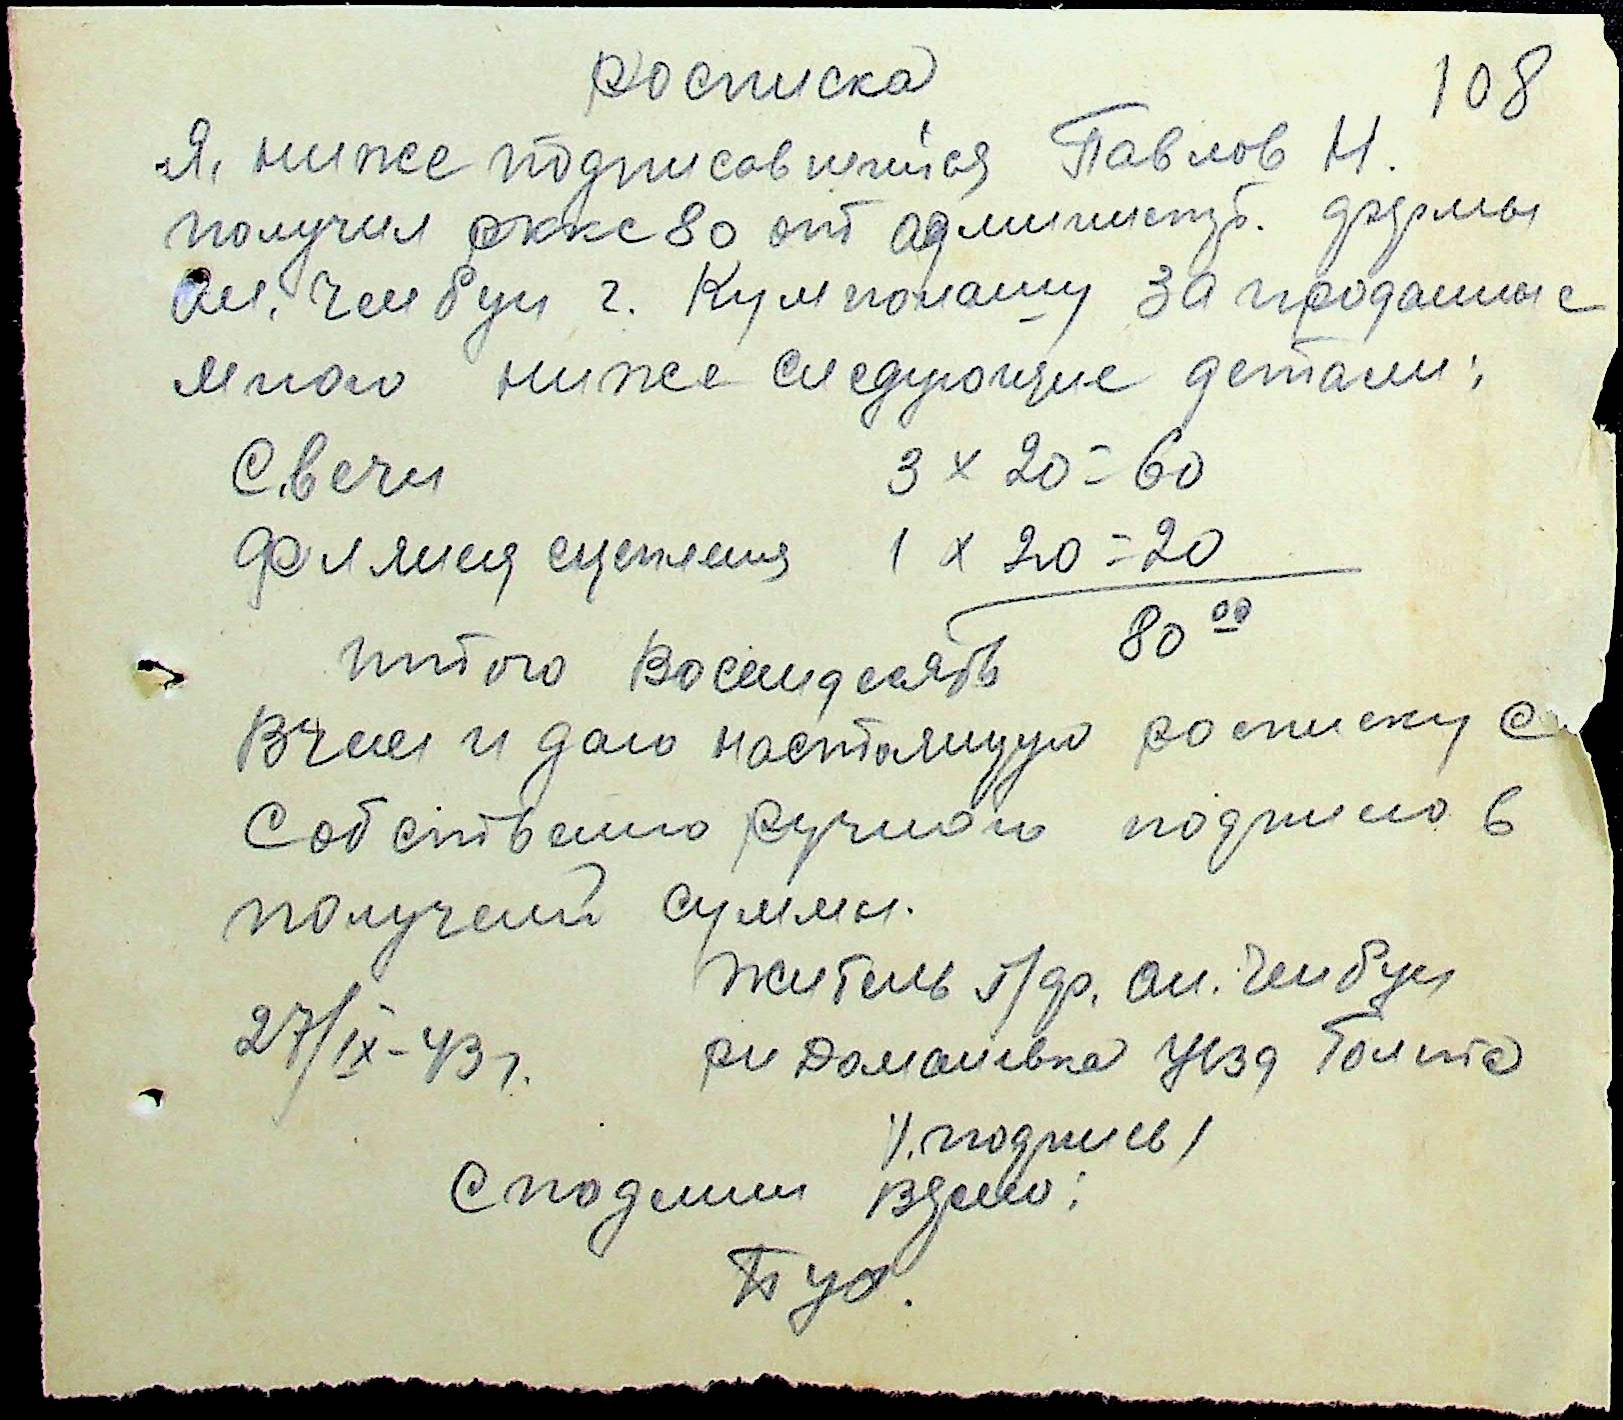 росписка
108
Я, ниже подписавшийся Павлов Н.
получил рккс 80 от администр. фермы
Ал. Чембун г. Кумпонашу за проданные
мною ниже следующие детали:
Свечи 3 x 20 = 60
сцепления 1 x 20 = 20
80 00
итого восемдесять
Вчем и даю настоящую росписку с
Собственно ручною подписю в
получений суммы.
Житель с/ф. Ал. Чембун
27/IX-43 г. рн Домашевка Уезд Голта
/.подпись/
С подлиным верно:
Бух.